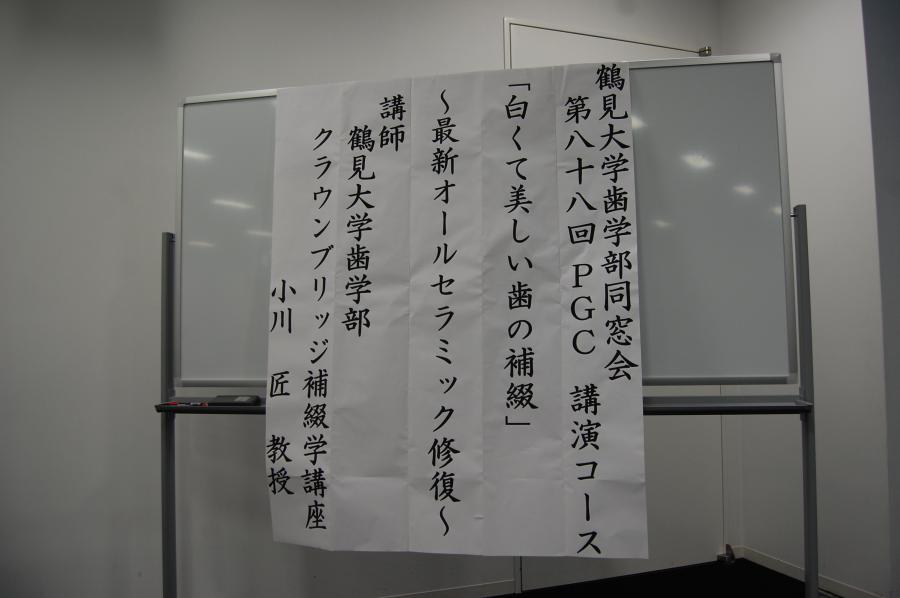 鶴見大学歯学部同窓会
第八十八回 PGC 講演コース
「白くて美しい歯の補綴」
～最新オールセラミック修復～
講師
鶴見大学歯学部
クラウンブリッジ補綴学講座
小川 匠 教授